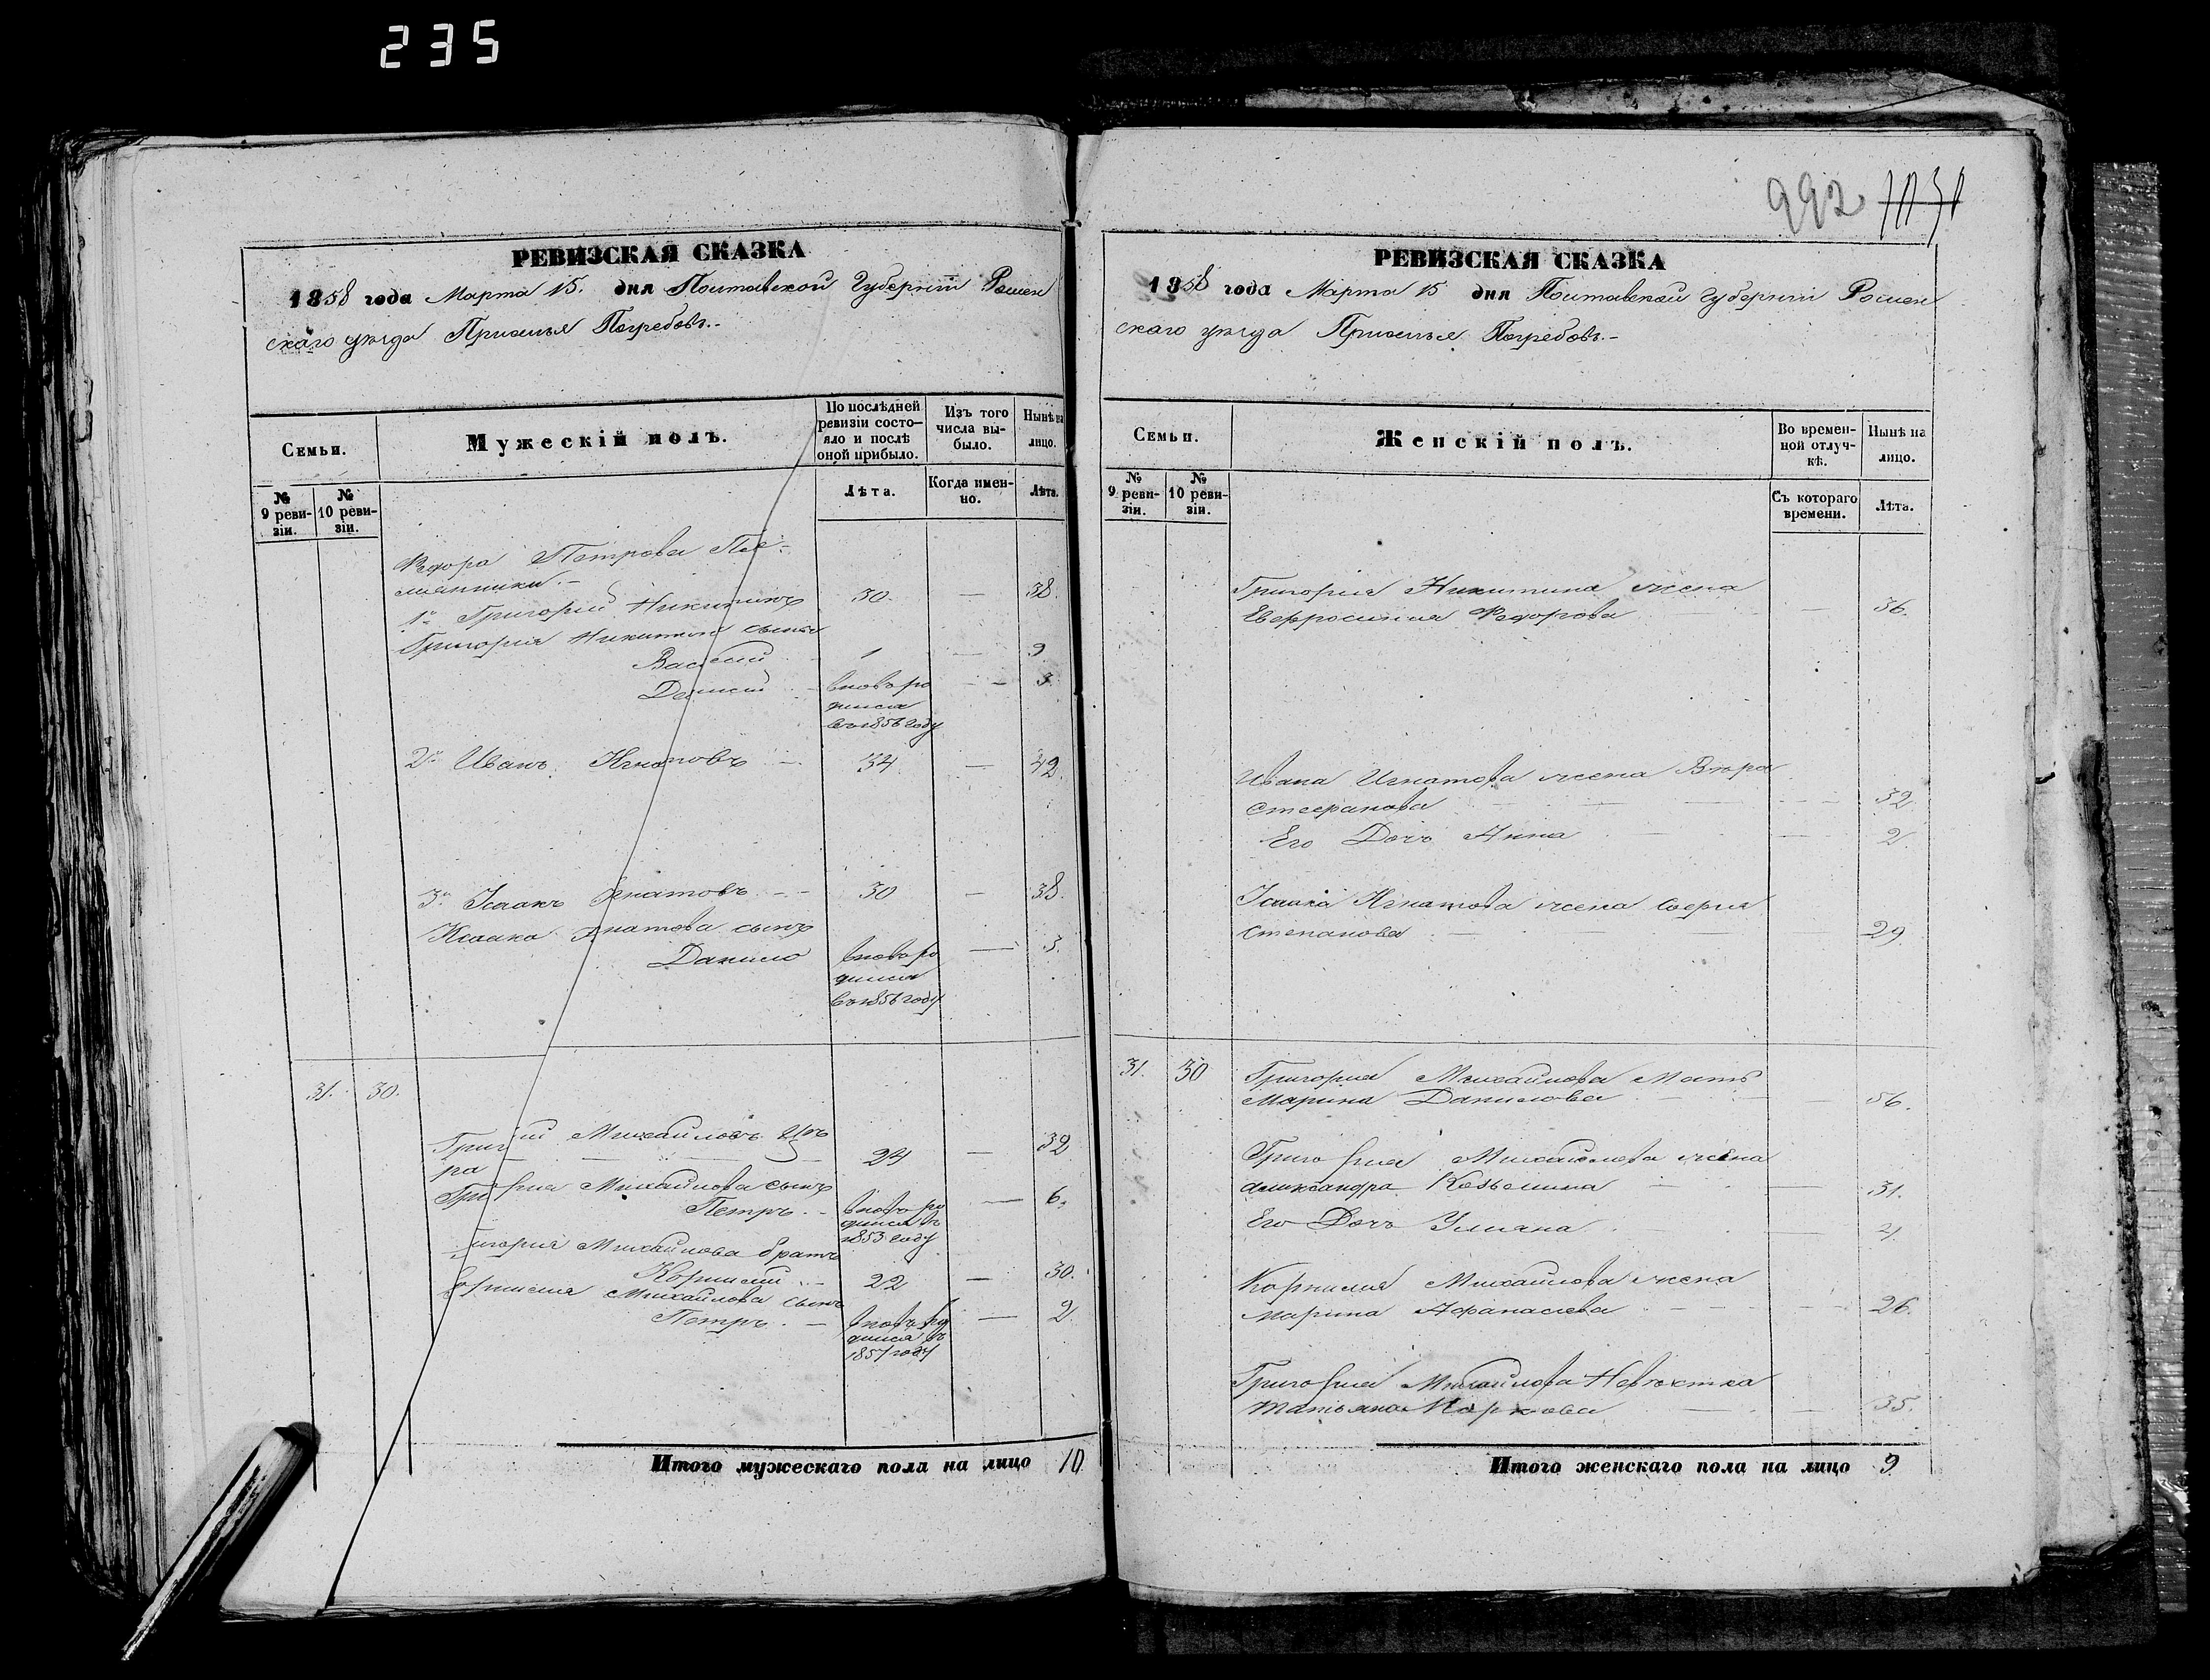 235
992 1030
РЕВИЗСКАЯ СКАЗКА
1858 года Марта 15. дня Полтавской Губерніи Ромен
скаго уѣзда Приселья Погребовъ.-
Семьи.
Мужескій полъ.
По послѣдней ревизіи состо-
яло и послѣ
оной прибыло.
Изъ того
числа вы-
было.
Нынѣ на
лицо.
№ 9 реви-
зіи.
№ 10 реви-
зіи.
Лѣта.
Когда имен-
но.
Лѣта.
Федора Петрова Пле-
мянники.-
1й Григорій Никитинъ 30. — 38.
Григорія Никитина сынья
Василій 1 — 9
Данило вновь ро — 3.
дился
въ 1856 году
2й Иванъ Игнатовъ — 34 — 42.
3й Исаакъ Игнатовъ - - 30 — 38.
Исаака Игнатова сынъ
Данило вновь ро — 3.
дился
въ 1856 году
31. 30.
Григорій Михайловъ
ра 24 — 32
Григорія Михайлова сынъ
Петръ. - вновь ро — 6.
дился въ
1853 году
Григорія Михайлова братъ
Корнилій .- 22 — 30.
Корнилія Михайлова сынъ
Петръ. — вновь ро — 2
дился въ
1857 году
Итого мужескаго пола на лицо 10
РЕВИЗСКАЯ СКАЗКА
1858 года Марта 15 дня Полтавской Губерніи Ромен
скаго уѣзда Приселья Погребовъ.-
Семьи.
Женскій полъ.
Во времен-
ной отлуч-
кѣ.
Нынѣ на
лицо.
№ 9 реви-
зіи.
№ 10 реви-
зіи.
Съ котораго
времени.
Лѣта.
Григорія Никитина жена
Евфросинія Федорова — 36.
Ивана Игнатова жена Вѣра
Стефанова — 32
Его Дочь Анна — 2
Исаака Игнатова жена Софія
Степанова — 29
31. 30 Григорія Михайлова Мать
Марина Данилова — 56.
Григорія Михайлова жена
Александра Козьмина — 31.
Его Дочь Ульяна 4
Корнилія Михайлова жена
Марина Афанасіева — 26.
Григорія Михайлова Невѣстка
Татьяна Маркова — 35.
Итого женскаго пола на лицо 9